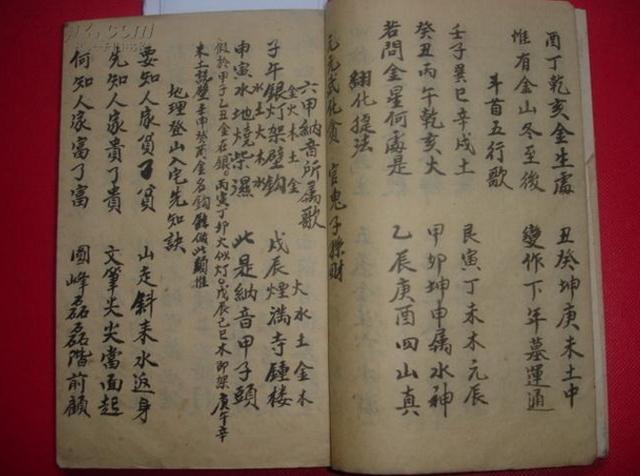 酉丁乾亥金生處 丑癸坤庚未土中
惟有金山冬至後 變作下年墓運通
斗首五行歌
壬子巽巳辛戌土 艮寅丁未木元辰
癸丑丙午乾亥火 甲卯坤申属水神
若問金星何處是 乙辰庚酉四山真
元武化貪 官鬼子孫財
六甲納音所属歌
金火木土金 火水土金木
子午銀灯架壁鈎 戊辰煙滿寺鍾楼
水土火木水
申寅水地燒柴濕 此是納音甲子頭
假於甲子乙丑金在銀 丙寅丁卯火似灯 戊辰己巳木即架 庚午辛
未土是壁 壬申癸酉金名鈎 餘倣此類推
地理登山入宅先知訣
要知人家貧了貧 山走斜来水返身
先知人家貴了貴 文筆尖尖當面起
何知人家富了富 圓峰磊磊階前顧